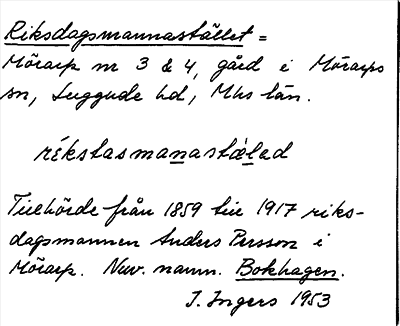 Riksdagsmannastället =
Mörarp nr 3 & 4, gård i Mörarps
sn, Luggude hd, Mhs län.
rékstasmanastæ̀led
Tillhörde från 1859 till 1917 riks-
dagsmannen Anders Persson i
Mörarp. Nuv. namn. Bokhagen.
I. Ingers 1953